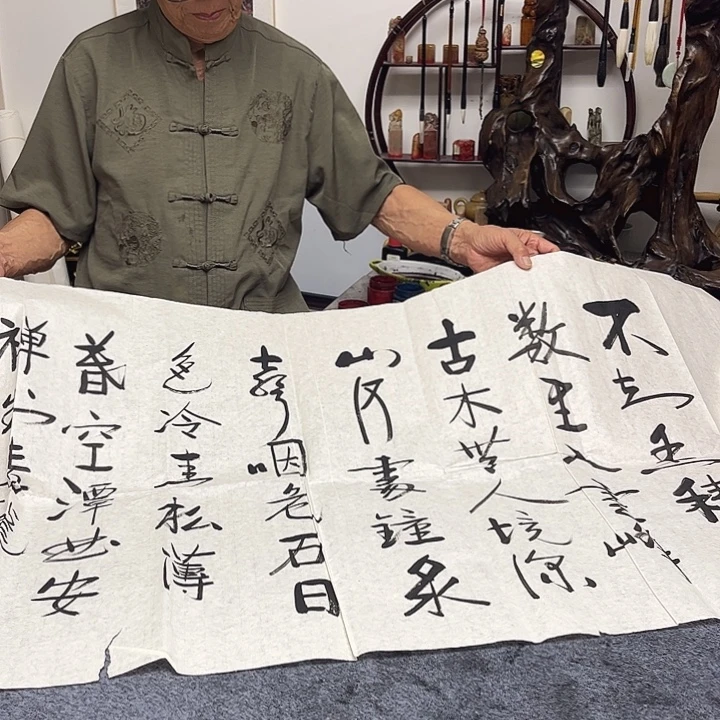 不知香積
数里入雲峰
古木無人境深
山何處鐘泉
聲咽危石日
色冷青松薄
暮空潭曲安
禪制毒龍